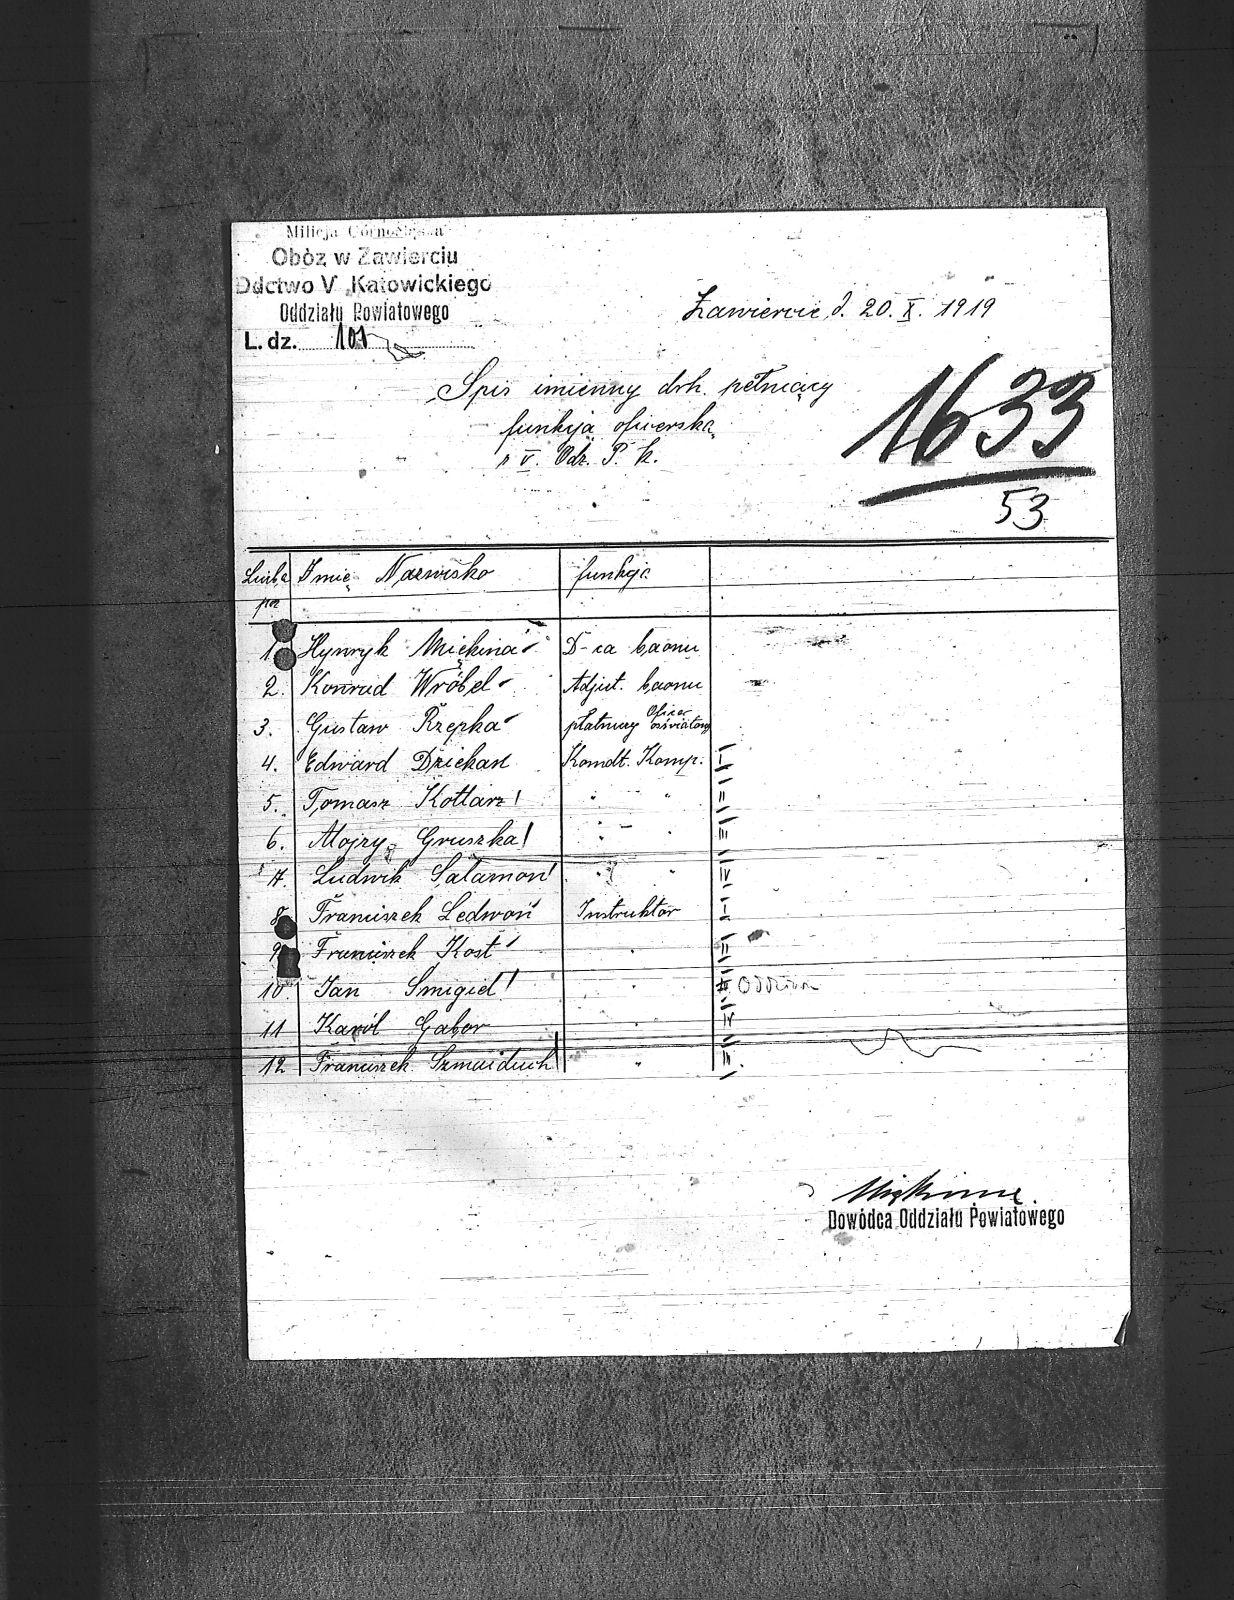 Milicja Górnośląska
Obóz w Zawierciu
Ddctwo V Katowickiego
Oddziału Powiatowego
L. dz. 101
Zawiercie, d. 20. X. 1919
Spis imienny drh. pełniący
funkcja oficerska
V. Odz. P. K.
1633
53
Liczba Imię Nazwisko funkcja
1. Hynryk Miękina D-ca baonu
2. Konrad Wróbel Adjut. baonu
3. Gustaw Rzepka płatniczy Oficer oświatowy
4. Edward Dziekan Komdt. Komp.
5. Tomasz Kotlarz " "
6. Alojzy Gruszka " "
7. Ludwik Salamon " "
8. Franciszek Ledwoń Instruktor
9. Franciszek Kost "
10. Jan Smigiel "
11 Karól Gabor "
12 Franciszek Szmaiduch "
Miękina
Dowódca Oddziału Powiatowego